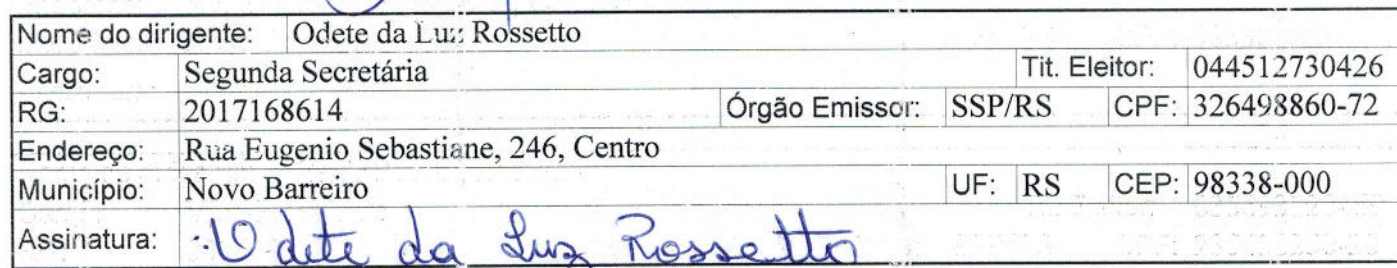 Nome do dirigente: Odete da Luz Rossetto
Cargo: Segunda Secretária Tit. Eleitor: 044512730426
RG: 2017168614 Órgão Emissor: SSP/RS CPF: 326498860-72
Endereço: Rua Eugenio Sebastiane, 246, Centro
Município: Novo Barreiro UF: RS CEP: 98338-000
Assinatura: Odete da Luz Rossetto